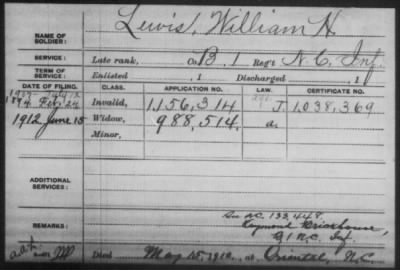 Lewis, William H
NAME OF SOLDIER:
SERVICE: Late rank, Co. B, 1 Reg't N.C. Inf.
TERM OF SERVICE: Enlisted , 1 Discharged , 1
DATE OF FILING. CLASS. APPLICATION NO. LAW. CERTIFICATE NO.
Invalid, 1,156,314 J. 1,038,369
1912 June 15 Widow, 988,514. a.
Minor,
ADDITIONAL SERVICES:
See N.C. 133,448,
REMARKS: Raymond Brickhouse,
1 N.C. Inf.
Died May 15, 1912, at Oriental, N.C.